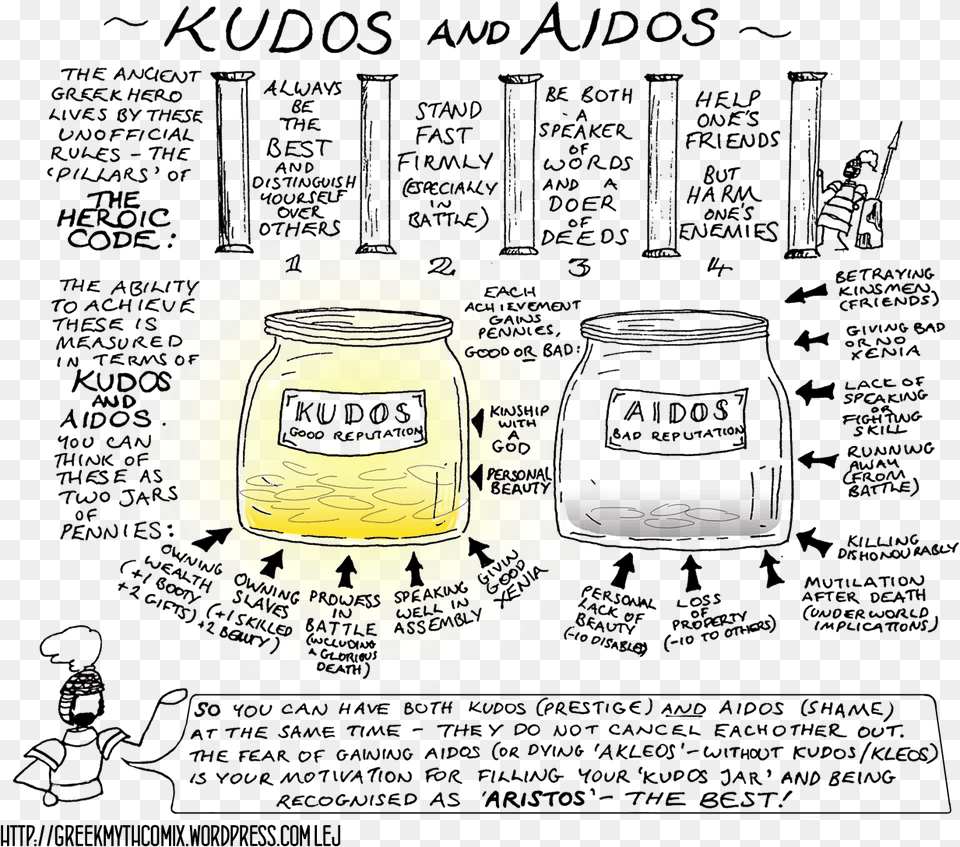 ~ KUDOS AND AIDOS ~
THE ANCIENT
GREEK HERO
LIVES BY THESE
UNOFFICIAL
RULES - THE
'PILLARS' OF
THE
HEROIC
CODE:
ALWAYS
BE
THE
BEST
AND
DISTINGUISH
YOURSELF
OVER
OTHERS
1
STAND
FAST
FIRMLY
(ESPECIALLY
IN
BATTLE)
2
BE BOTH
A
SPEAKER
OF
WORDS
AND A
DOER
OF
DEEDS
3
HELP
ONE'S
FRIENDS
BUT
HARM
ONE'S
ENEMIES
4
THE ABILITY
TO ACHIEVE
THESE IS
MEASURED
IN TERMS OF
KUDOS
AND
AIDOS.
YOU CAN
THINK OF
THESE AS
TWO JARS
OF
PENNIES:
EACH
ACHIEVEMENT
GAINS
PENNIES,
GOOD OR BAD:
KUDOS
GOOD REPUTATION
KINSHIP
WITH
A
GOD
PERSONAL
BEAUTY
OWNING
WEALTH
(+1 BOOTY
+2 GIFTS)
OWNING
SLAVES
(+1 SKILLED
+2 BEAUTY)
PROWESS
IN
BATTLE
(INCLUDING
A GLORIOUS
DEATH)
SPEAKING
WELL IN
ASSEMBLY
GIVIN
GOOD
XENIA
AIDOS
BAD REPUTATION
BETRAYING
KINSMEN
(FRIENDS)
GIVING BAD
OR NO
XENIA
LACK OF
SPEAKING
OR
FIGHTING
SKILL
RUNNING
AWAY
(FROM
BATTLE)
KILLING
DISHONOURABLY
MUTILATION
AFTER DEATH
(UNDERWORLD
IMPLICATIONS)
PERSONAL
LACK OF
BEAUTY
(-10 DISABLED)
LOSS
OF
PROPERTY
(-10 TO OTHERS)
SO YOU CAN HAVE BOTH KUDOS (PRESTIGE) AND AIDOS (SHAME)
AT THE SAME TIME - THEY DO NOT CANCEL EACHOTHER OUT.
THE FEAR OF GAINING AIDOS (OR DYING 'AKLEOS' - WITHOUT KUDOS/KLEOS)
IS YOUR MOTIVATION FOR FILLING YOUR 'KUDOS JAR' AND BEING
RECOGNISED AS 'ARISTOS' - THE BEST!
HTTP://GREEKMYTHCOMIX.WORDPRESS.COM LEJ